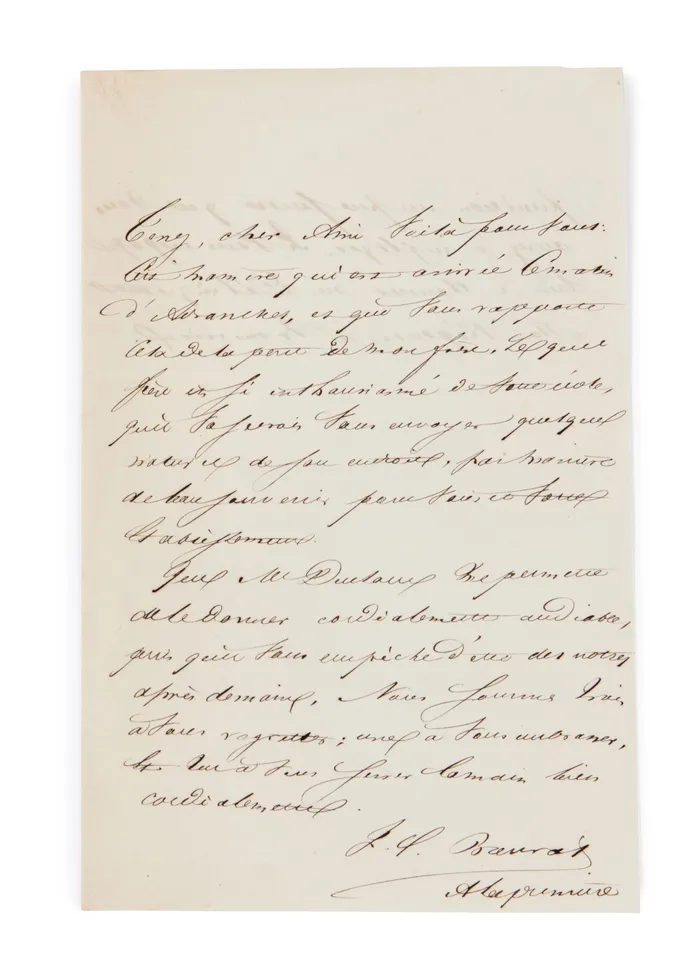 Tenez, cher Ami voilà pour vous:
manière qui est arrivée ce matin
d'Avranches, et que vous rapporte
de la part de mon frère. Lequel
frère est si enthousiasmé de votre école,
qu'il vous envoyer quelques
de son endroit, par manière
de bon souvenir pour vous et votre
Etablissement.
Que Mr me permette
de le donner cordialement au diable,
puis qu'il vous empêche d'être des notres
après demain. Nous sommes trois
à vous regretter; une à vous embrasser,
les à vous serrer la main bien
cordialement.
A la première